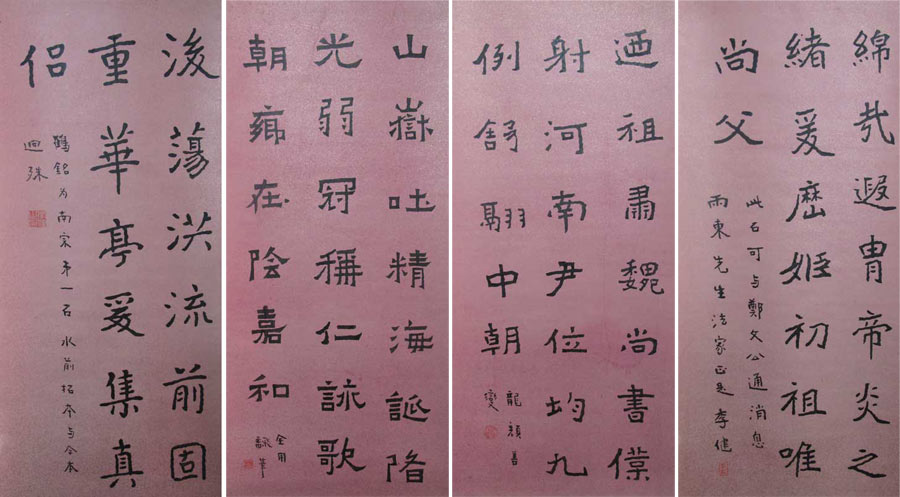 綿哉遐胄帝炎之
緒爰歷姬初祖唯
尚父
此石可与鄭文公通消息
雨東先生法家正是 李健
迺祖肅魏尚書僕
射河南尹位均九
例舒翮中朝
龍顏善
變
山嶽吐精海誕陏
光弱冠稱仁詠歌
朝在陰嘉和
全用
筆
後蕩洪流前固
重華亭爰集真
侶
鶴銘为南宗弟一石 水前拓本与今本
迥殊